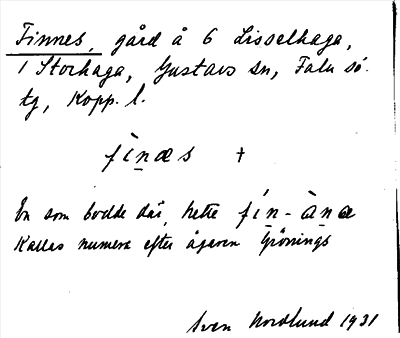 Finnes, gård å 6 Lisselhaga,
1 Storhaga, Gustavs sn, Falu sö.
tg, Kopp. l.
fìn̲æs +
En som bodde där, hette fín-àn̲æ
Kallas numera efter ägaren Grönings
Sven Nordlund 1931